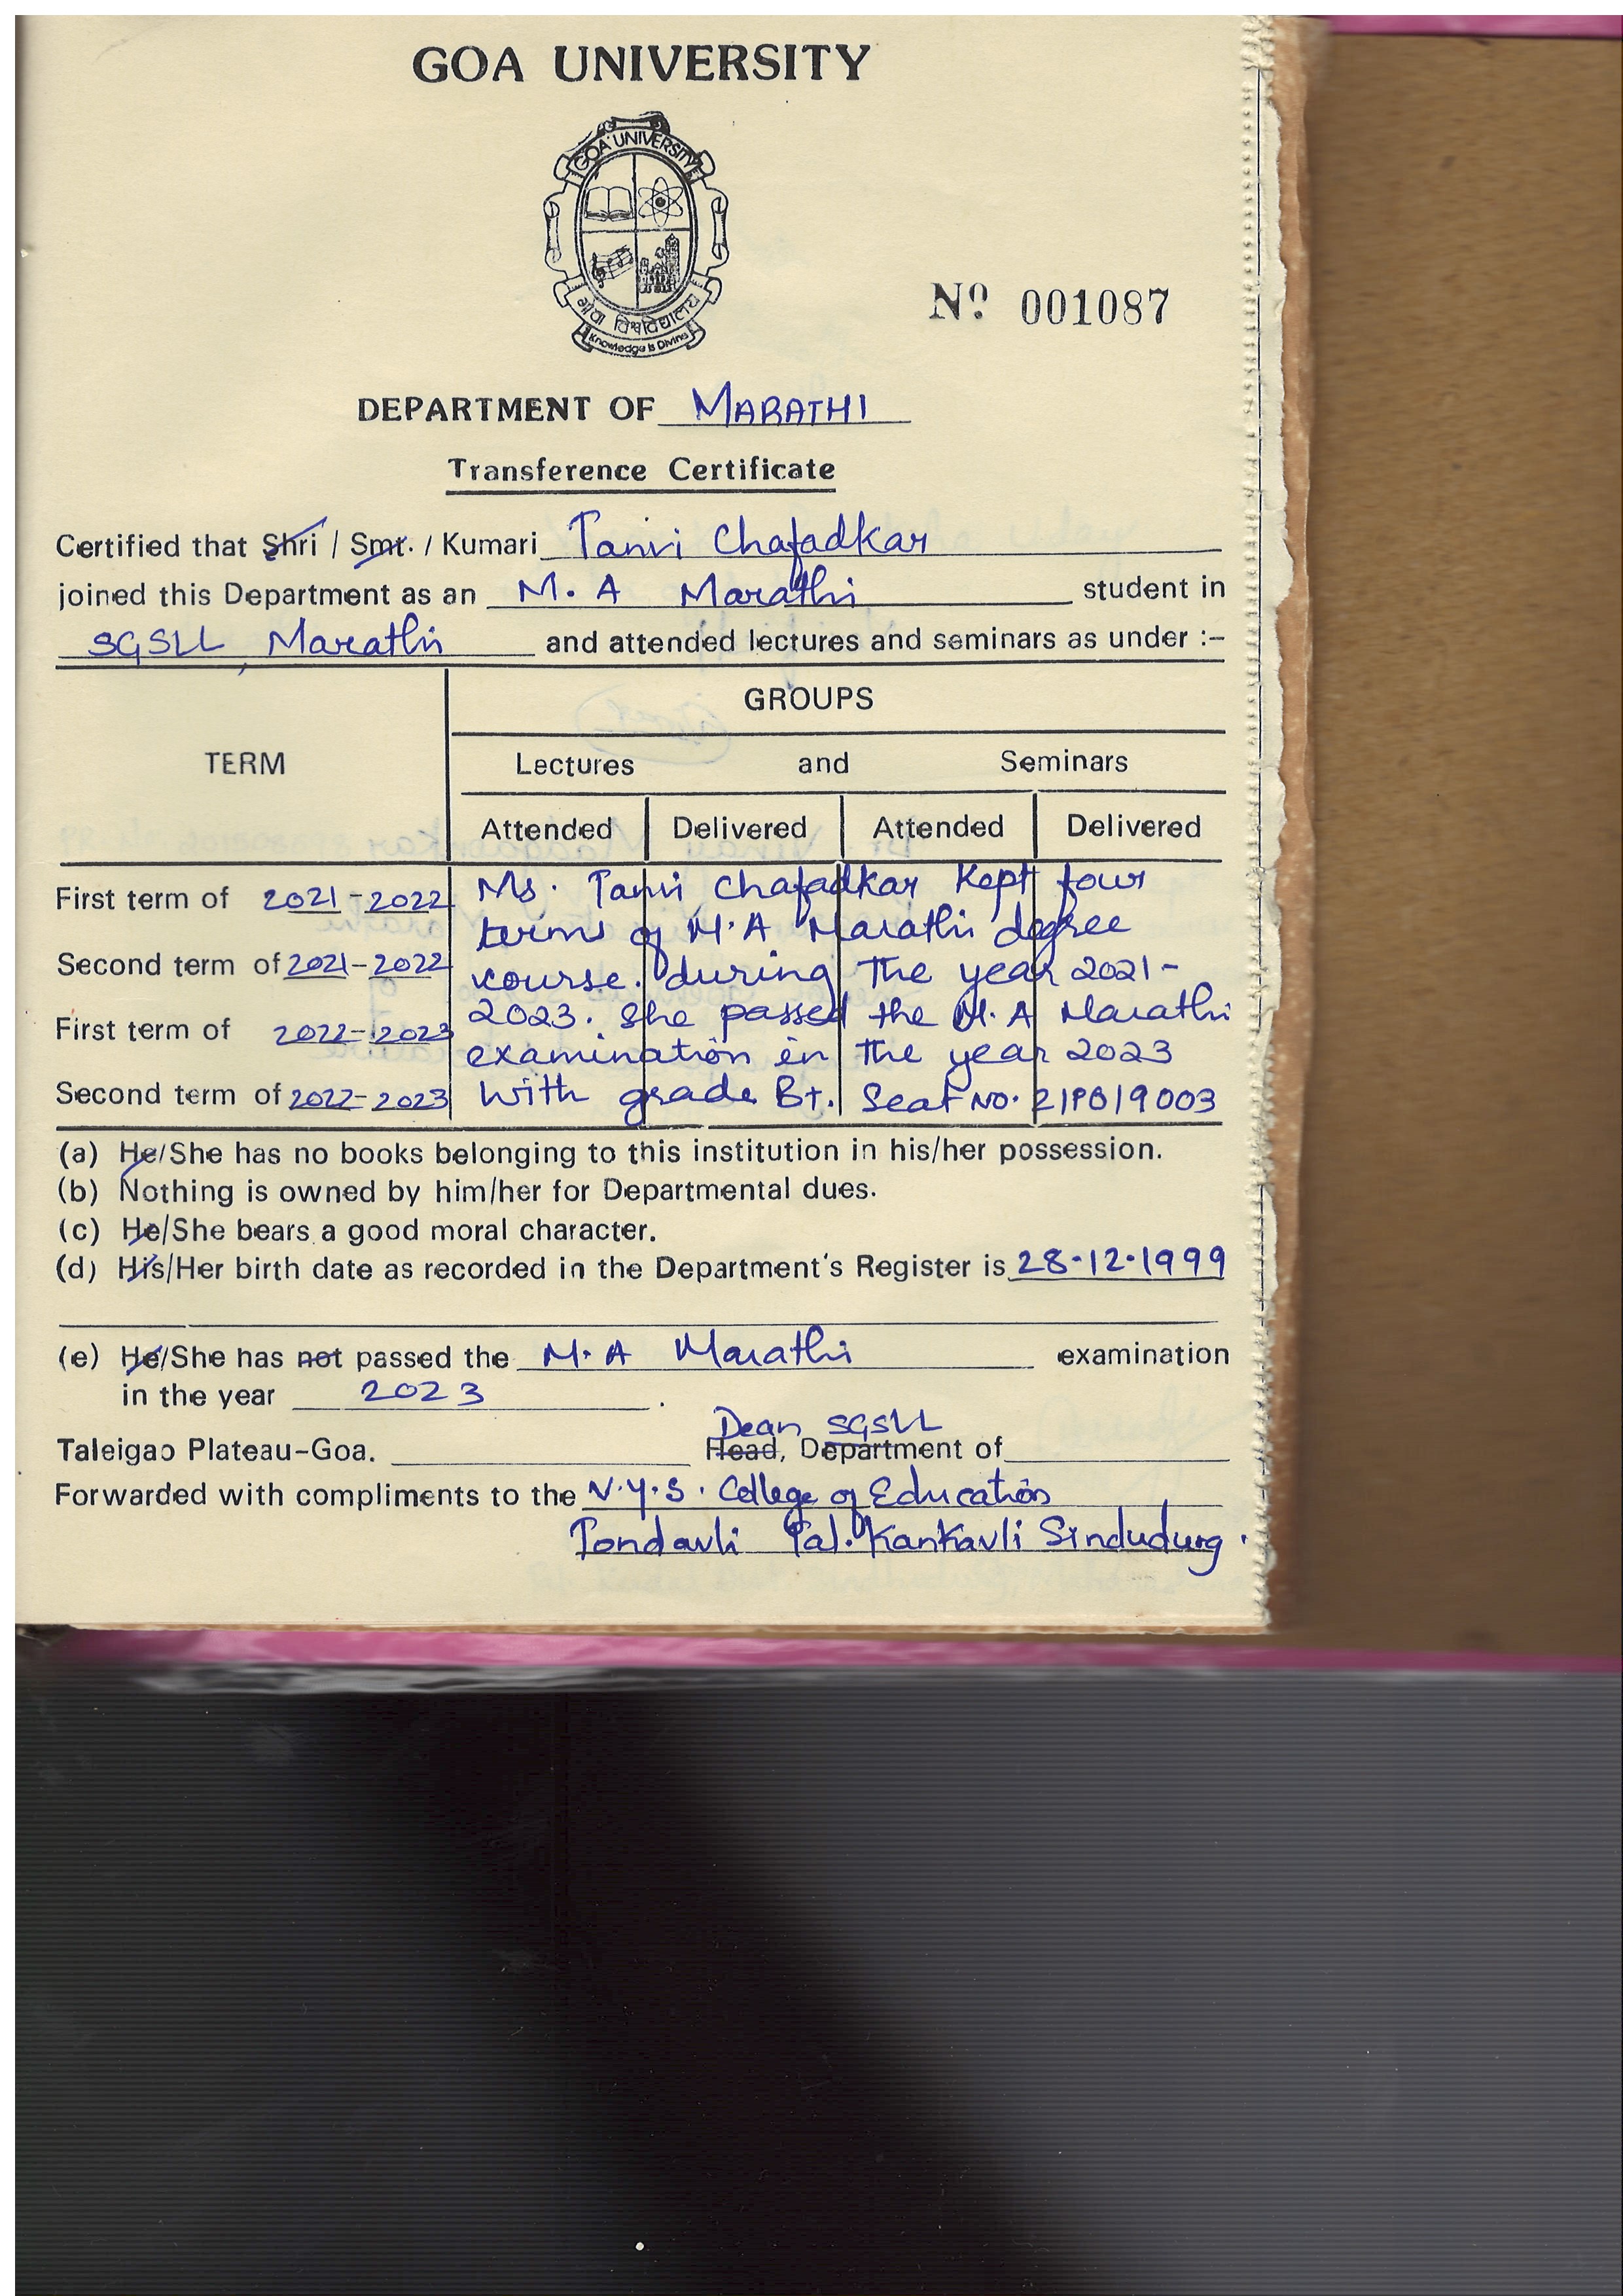 GOA UNIVERSITY
GOA UNIVERSITY
गोंवा विश्वविद्यालय
Knowledge is Divine
Nº 001087
DEPARTMENT OF MARATHI
Transference Certificate
Certified that Shri / Smt. / Kumari Tanvi Chafadkar
joined this Department as an M. A Marathi student in
SGSLL, Marathi and attended lectures and seminars as under :-
GROUPS
TERM Lectures and Seminars
Attended Delivered Attended Delivered
First term of 2021-2022 Ms. Tanvi Chafadkar Kept four
terms of M.A Marathi degree
Second term of 2021-2022 course. during the year 2021-
First term of 2022-2023 2023. She passed the M.A Marathi
examination in the year 2023
Second term of 2022-2023 With grade B+. Seat NO. 21P019003
(a) He/She has no books belonging to this institution in his/her possession.
(b) Nothing is owned by him/her for Departmental dues.
(c) He/She bears a good moral character.
(d) His/Her birth date as recorded in the Department's Register is 28-12-1999
(e) He/She has not passed the M.A Marathi examination
in the year 2023.
Dean SGSLL
Taleigao Plateau-Goa. Head, Department of
Forwarded with compliments to the N.Y.S. College of Education
Tondavli Tal. Kankavli Sindudurg.